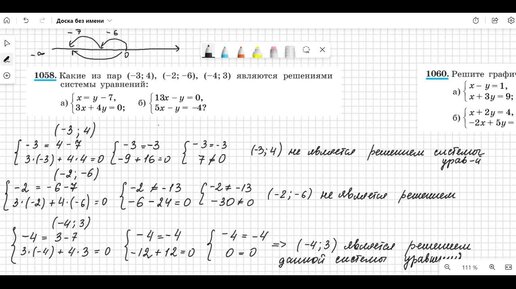 Доска без имени
-7 -6
-∞ 0
1058. Какие из пар (−3; 4), (−2; −6), (−4; 3) являются решениями
системы уравнений:
а) { x = y − 7, 3x + 4y = 0; б) { 13x − y = 0, 5x − y = −4?
1060. Решите графи
а) { x − y = 1, x + 3y = 9;
б) { x + 2y = 4, −2x + 5y =
(-3; 4)
{ -3 = 4-7 { -3 = -3 { -3 = -3
3·(-3)+4·4=0 -9+16=0 7≠0
(-3; 4) не является решением системы
урав-й
(-2; -6)
{ -2 = -6-7 { -2 ≠ -13 { -2 ≠ -13
3·(-2)+4·(-6)=0 -6-24=0 -30≠0
(-2; -6) не является решением
(-4; 3)
{ -4 = 3-7 { -4 = -4 { -4 = -4
3·(-4)+4·3=0 -12+12=0 0=0
=> (-4; 3) является решением
данной системы
111 %